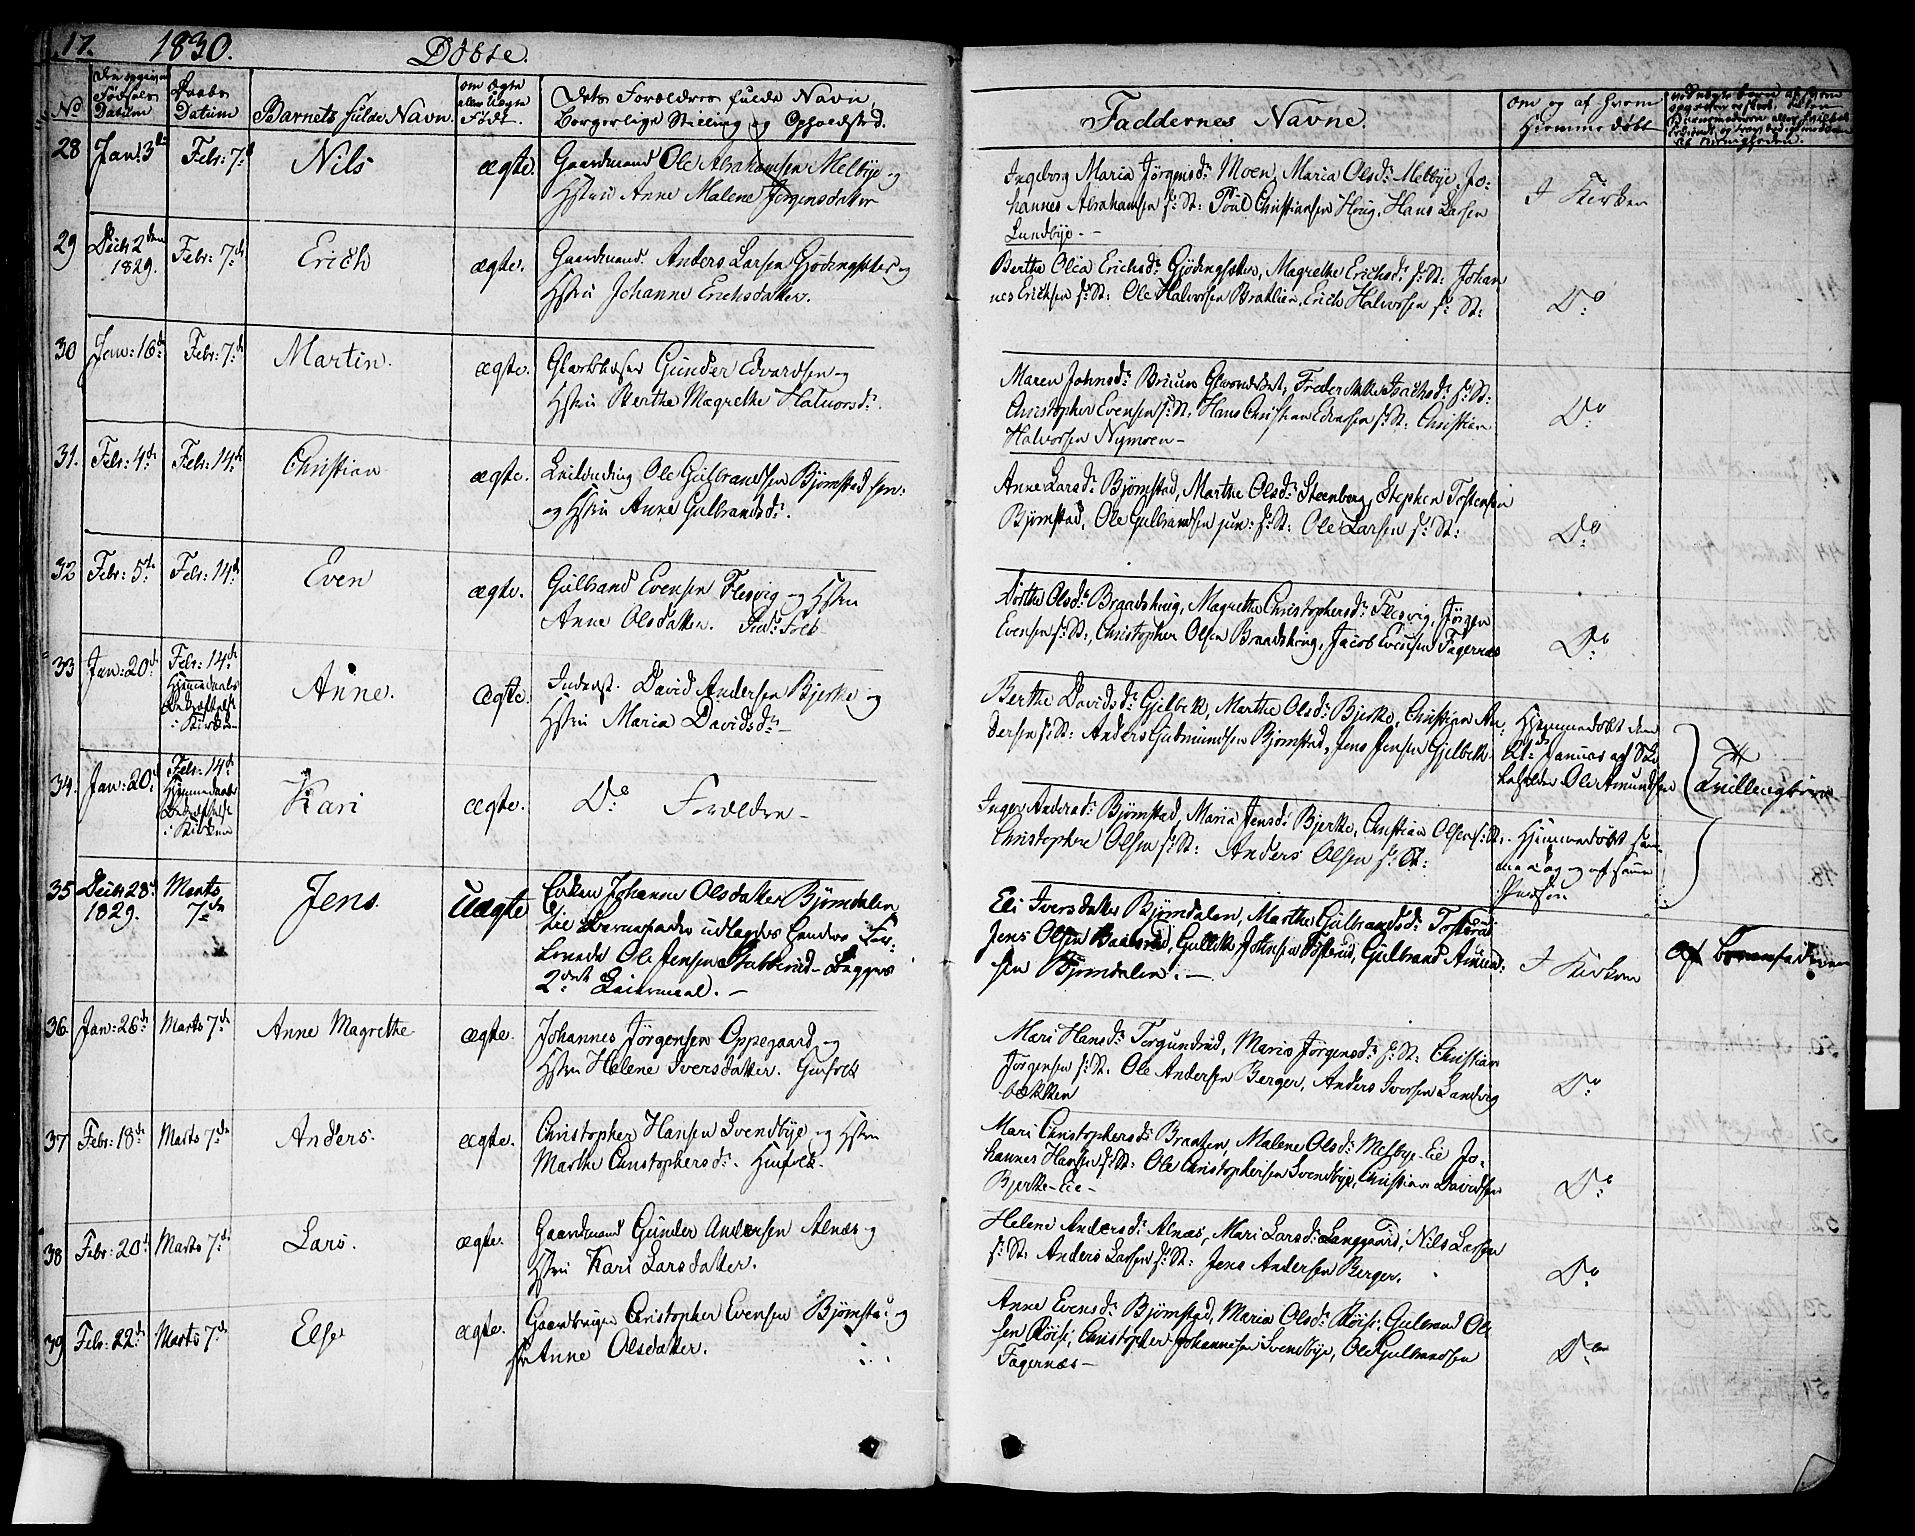 17. 1830. Døbte.
No
Fødsels Datum
Daabs Datum
Barnets fulde Navn
om Ægte eller Uægte Født
Dets Forældres fulde Navn,
borgerlige Stilling og Opholdsted.
Faddernes Navne.
om og af hvem
Hjemmedøbt
28 Jan: 3de Febr: 7de Nils ægte. Gaardmand Ole Abrahamsen Melbye og
Hstru Anne Malene Jørgensdatter
Ingeborg Maria Jörgensdr Moen, Maria Olsdr Melbye, Jo-
hannes Abrahamsen s: St: Poul Christiansen Houg, Hans Larsen
Lundbye.-
I Kirken
29 Decb 2den 1829. Febr: 7de Erich ægte. Gaardmand Anders Larsen Gjödingsæter og
Hstru Johanne Erichsdatter.
Berthe Olea Erichsdr Gjödingsæter, Magrethe Erichsdr s: St: Johan
nes Erichsen s: St: Ole Halvorsen Brathlien, Erich Halvorsen s: St:
Do
30 Jan: 16de Febr: 7de Martin. ægte. Gunder Edvardsen og
Hstru Berthe Magrethe Halvorsdr.
Maren Johnsdr Bruun Glasværket, Frederikke Isachsdr s: St:
Christopher Evensen s: St: Hans Christian Edvarsen s: St: Christian
Halvorsen Nymoen-
Do
31. Febr: 4de Febr: 14de Christian ægte. Ole Gulbrandsen Bjørnstad sen:
og Hstru Anne Gulbrandsdr.
Anne Larsdr Bjørnstad, Marthe Olsdr Steenberg, Stephen Tostensen
Bjørnstad, Ole Gulbrandsen jun: s: St: Ole Larsen s: St:
Do
32 Febr: 5te Febr: 14de Even ægte. Gulbrand Evensen Flesvig og Hstru
Anne Olsdatter. Inds: Folk
Dorthe Olsdr Braadshoug, Magrethe Christophersdr Flesvig, Jörgen
Evensen s: St:, Christopher Olsen Braadshoug, Jacob Evensen Fagernæs
Do
33 Jan: 20de Febr: 14de
Hjemmedaab
Bekræftelse
i Kirken
Anne. Ægte. Inderst. David Andersen Bjerke og
Hstru Maria Davidsdr-
Berthe Davidsdr Gjelbek, Marthe Olsdr Bjerke, Christian An-
dersen s: St: Anders Gudmundsen Bjørnstad, Jens Jensen Gjelbek
Hjemmedøbt den
21de Januar af Sko
leholder Ole Amundsen
Tvillingbørn
34. Jan: 20de Febr: 14de
Hjemmedaab
Bekræftelse
i Kirken
Kari ægte. Do Forældre-
Inger Andersdr Bjørnstad, Maria Jensdr Bjerke, Christian Olsen s: St:
Christopher Olsen s: St: Anders Olsen s: St:
Hjemmedøbt sam-
me Dag og af samme
Person
35 Decb 28de 1829. Marts 7de Jens Uægte Johanne Olsdatter Bjørndalen
til Barnefader udlagdes hendes For-
lovede Ole Jensen Stabberud- Begges
2det Leiermaal.-
Eli Iversdatter Bjørndalen, Marthe Gulbrandsdr Tosterud
Jens Olsen Baaserud, Gullik Johnsen Tosterud, Gulbrand Amund-
sen Bjørndalen.-
I Kirken
Af Barnefaderen
36 Jan: 26de Marts 7de Anne Magrethe ægte. Johannes Jörgensen Oppegaard og
Hstru Helene Iversdatter. Huusfolk
Mari Hansdr Torgundrud, Maria Jörgensdr s: St: Christian
Jørgensen s: St. Ole Andersen Berger, Anders Iversen Landvig
bækken
Do
37 Febr: 18de Marts 7de Anders. ægte. Christopher Hansen Svendbye og Hstru
Marthe Christophersdr. Huusfolk.
Mari Christophersdr Braaten, Malene Olsdr Melbye-Eie Jo-
hannes Hansen s: St: Ole Christophersen Svendbye, Christian Davidsen
Bjerke-Eie-
Do
38 Febr: 20de Marts 7de Lars. ægte. Gaardmand Gunder Andersen Alnæs og
Hstru Kari Larsdatter.
Helene Andersdr Alnæs, Mari Larsdr Langgaard, Nils Larsen
s: St: Anders Larsen s: St: Jens Andersen Berger.
Do
39 Febr: 22de Marts 7de Else ægte. Gaardbruger Christopher Evensen Bjørnstad og
Hstru Anne Olsdatter.
Anne Evensdr Bjørnstad, Maria Olsdr Röise, Gulbrand Ol-
sen Röise, Christopher Johannesen Svendbye, Ole Gulbrandsen
Fagernæs-
Do